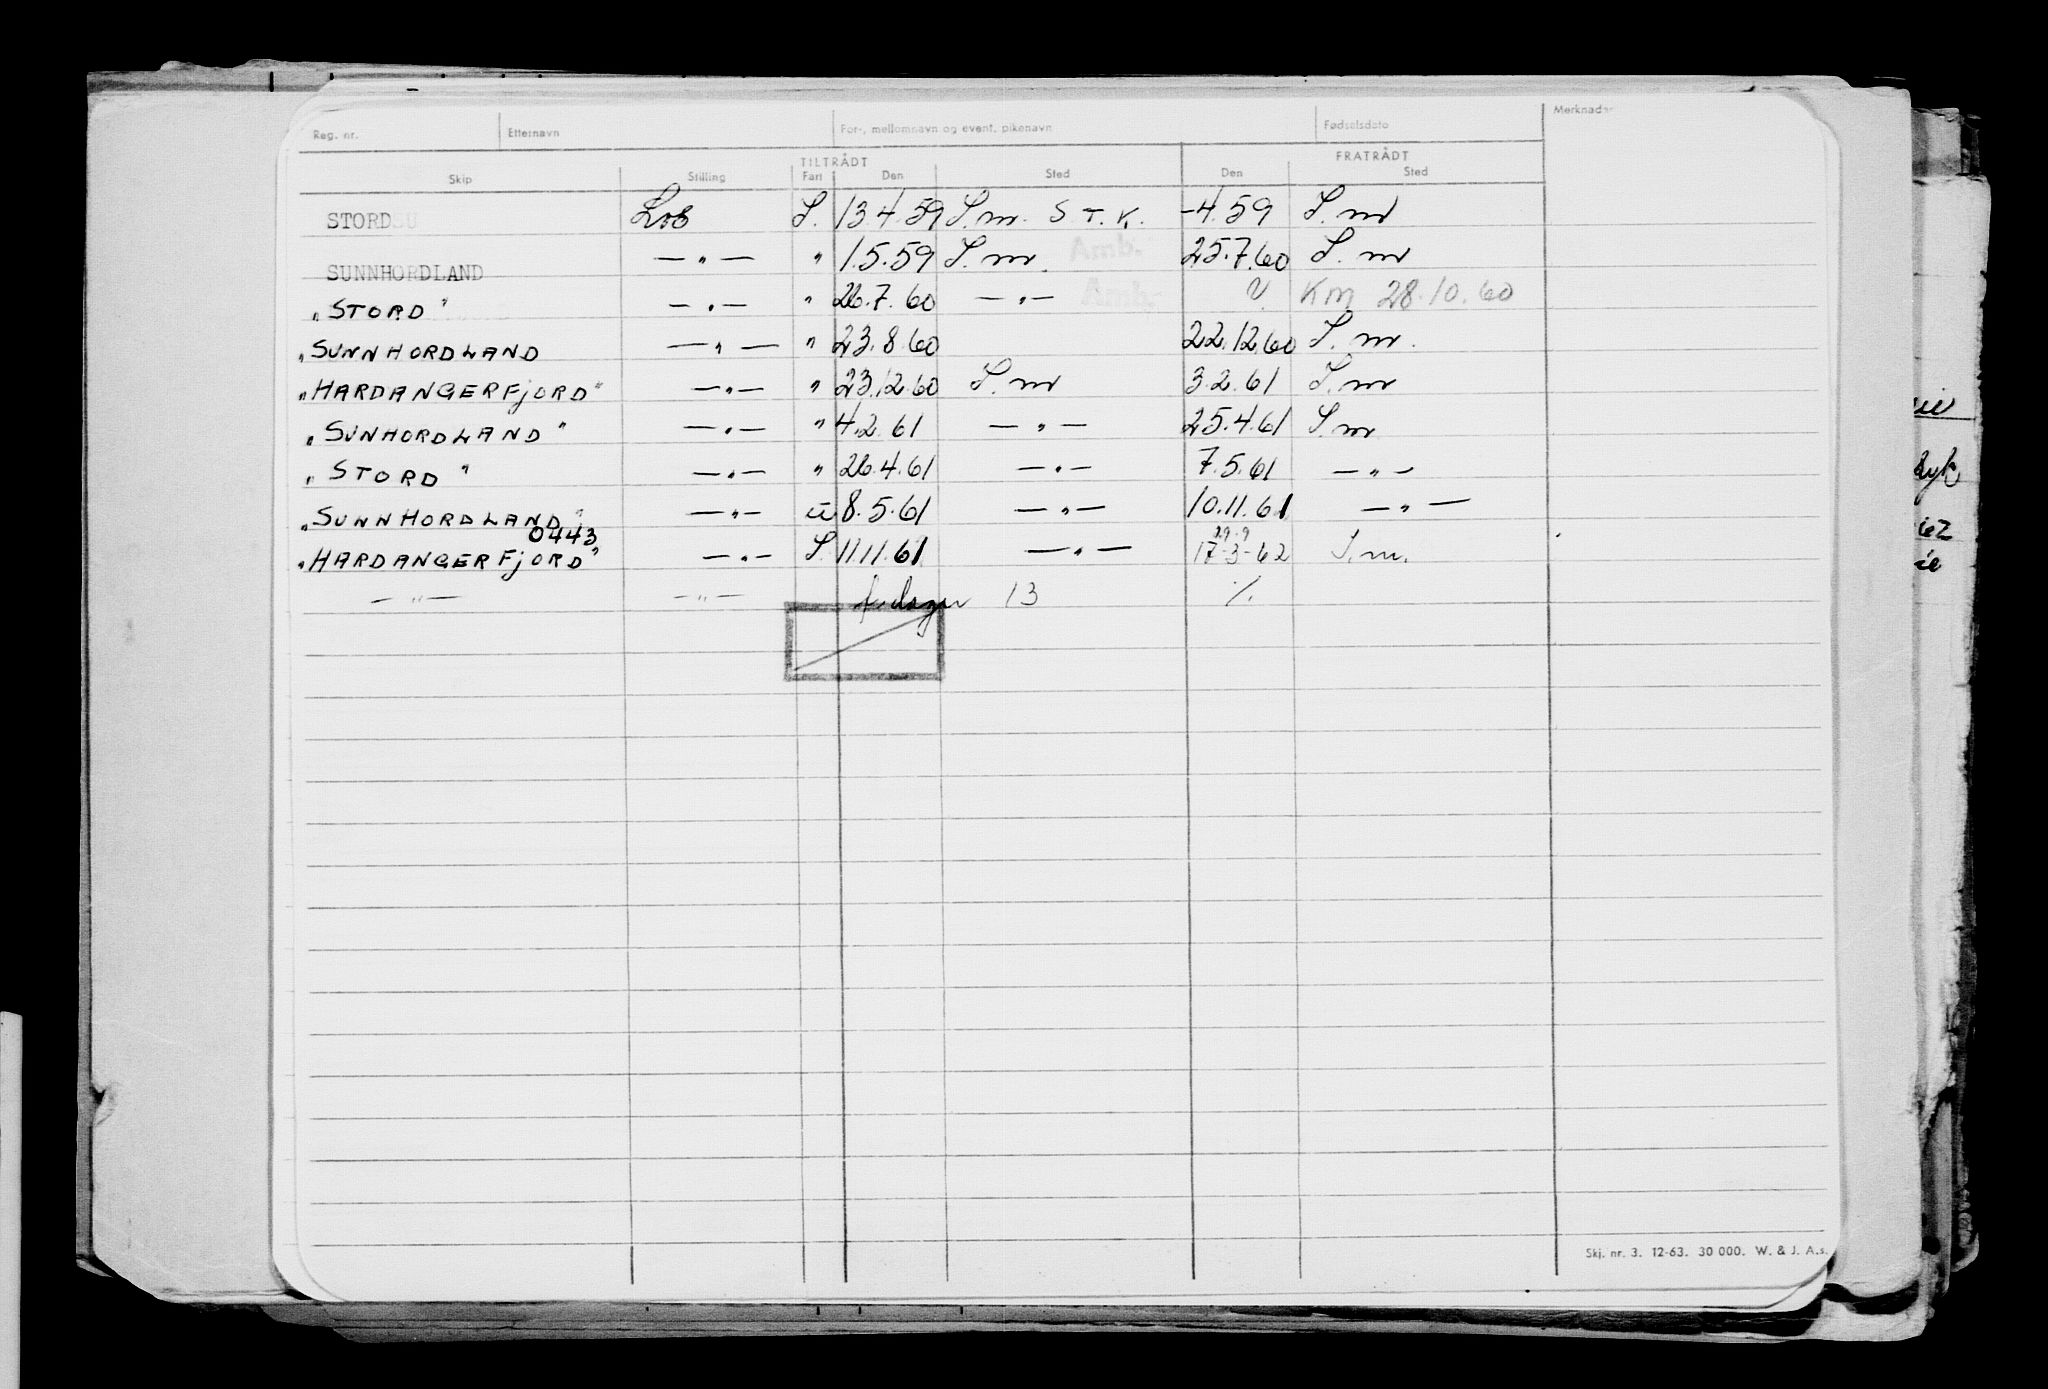 Reg. nr. Etternavn For-, mellomnavn og event. pikenavn Fødselsdato Merknader
TILTRÅDT FRATRÅDT
Skip Stilling Fart Den Sted Den Sted
STORD Los S. 13.4.59 S.m. S T. K. -4.59 S.m
SUNNHORDLAND —〃— 〃 1.5.59 S.m. Amb. 25.7.60 S.m
"STORD" —〃— 〃 26.7.60 —〃— Amb. V KM 28.10.60
"SUNNHORDLAND —〃— 〃 23.8.60 22.12.60 S.m.
"HARDANGERFjORD" —〃— 〃 23.12.60 S.m 3.2.61 S.m
"SUNHORDLAND" —〃— 〃 4.2.61 —〃— 25.4.61 S.m
"STORD" —〃— 〃 26.4.61 —〃— 7.5.61 —〃—
"SUNNHORDLAND" —〃— u 8.5.61 —〃— 10.11.61 —〃—
0443 29.9
"HARDANGERFjORD" —〃— S. 11.11.61 —〃— 17-3-62 S.m.
—〃— —〃— f.dager 13 %.
Skj. nr. 3. 12-63. 30 000. W. & J. A.s.
62